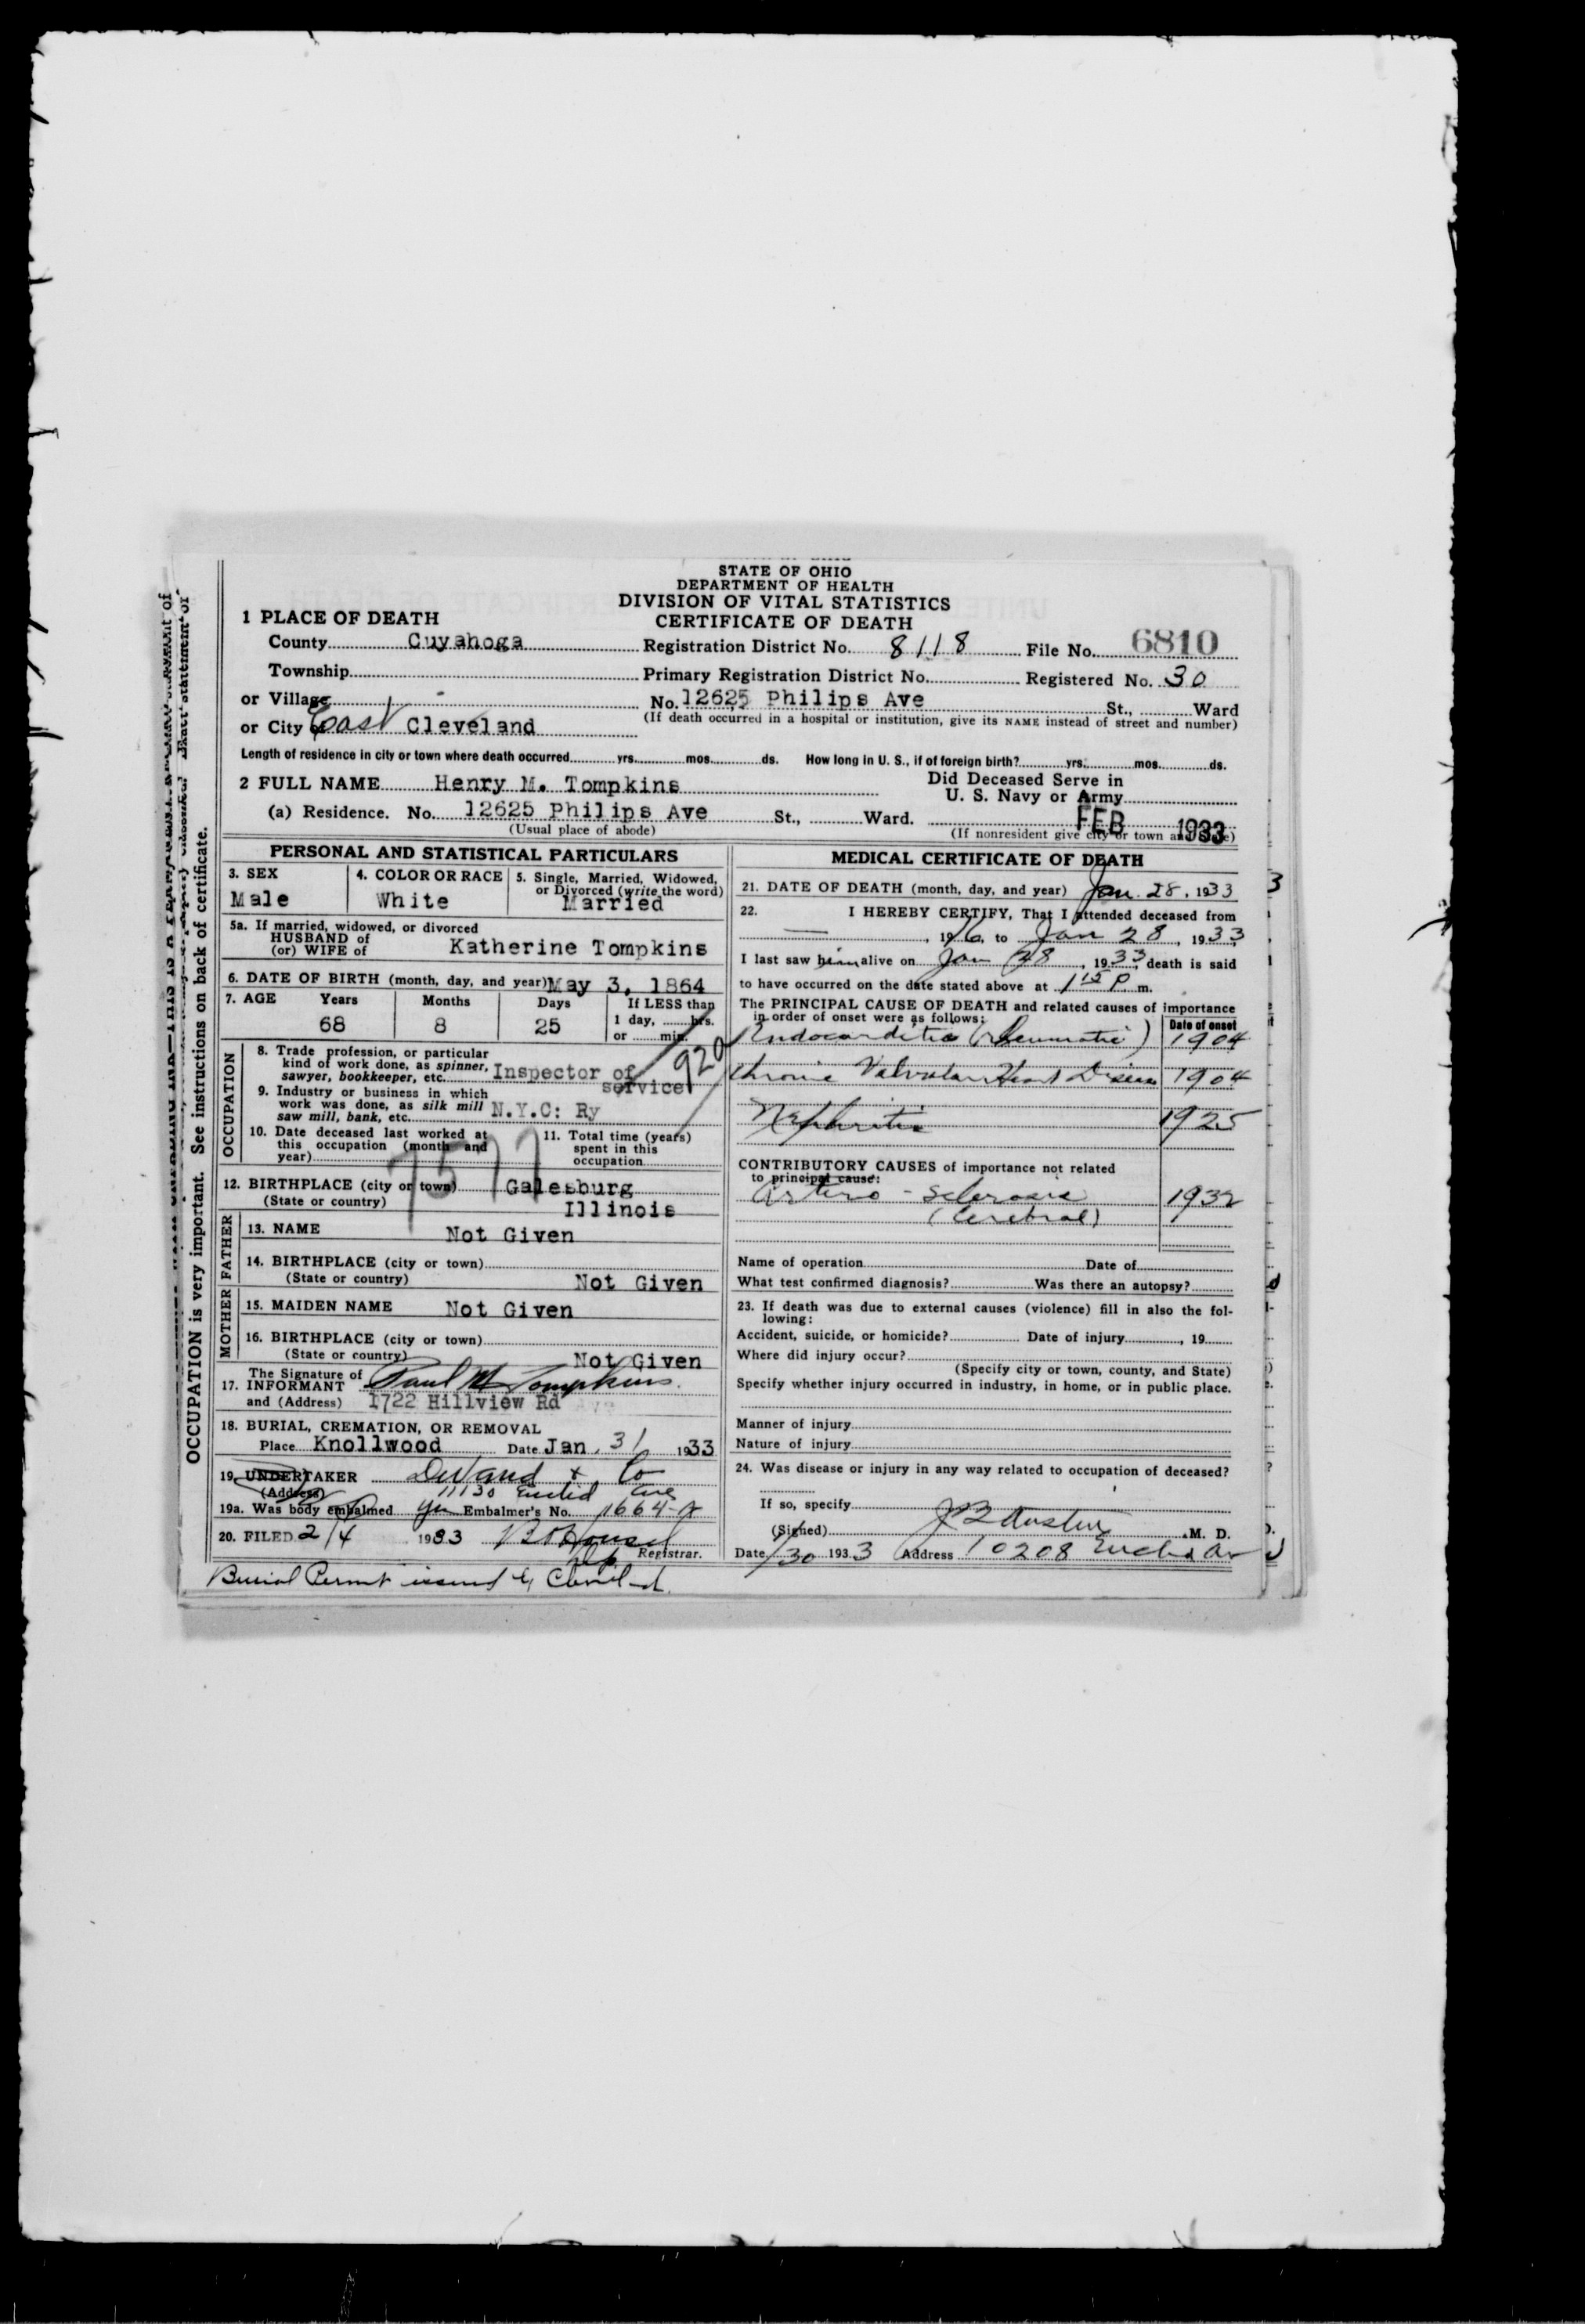 STATE OF OHIO
DEPARTMENT OF HEALTH
DIVISION OF VITAL STATISTICS
CERTIFICATE OF DEATH
1 PLACE OF DEATH
County Cuyahoga Registration District No. 8118 File No. 6810
Township Primary Registration District No. Registered No. 30
or Village No. 12625 Philips Ave St., Ward
(If death occurred in a hospital or institution, give its NAME instead of street and number)
or City East Cleveland
Length of residence in city or town where death occurred yrs. mos. ds. How long in U. S., if of foreign birth? yrs. mos. ds.
2 FULL NAME Henry M. Tompkins Did Deceased Serve in
U. S. Navy or Army
(a) Residence. No. 12625 Philips Ave St., Ward.
(Usual place of abode) (If nonresident give city or town and State)
FEB 1933
PERSONAL AND STATISTICAL PARTICULARS
3. SEX 4. COLOR OR RACE 5. Single, Married, Widowed,
or Divorced (write the word)
Male White Married
5a. If married, widowed, or divorced
HUSBAND of
(or) WIFE of Katherine Tompkins
6. DATE OF BIRTH (month, day, and year) May 3, 1864
7. AGE Years Months Days If LESS than
68 8 25 1 day, hrs.
or min.
OCCUPATION
8. Trade profession, or particular
kind of work done, as spinner,
sawyer, bookkeeper, etc. Inspector of
service
9. Industry or business in which
work was done, as silk mill
saw mill, bank, etc. N.Y.C: Ry
10. Date deceased last worked at
this occupation (month and
year)
11. Total time (years)
spent in this
occupation
12. BIRTHPLACE (city or town) Galesburg
(State or country) Illinois
FATHER
13. NAME Not Given
14. BIRTHPLACE (city or town)
(State or country) Not Given
MOTHER
15. MAIDEN NAME Not Given
16. BIRTHPLACE (city or town)
(State or country) Not Given
The Signature of
17. INFORMANT Paul M Tompkins
and (Address) 1722 Hillview Rd
18. BURIAL, CREMATION, OR REMOVAL
Place Knollwood Date Jan. 31 1933
19. UNDERTAKER DeVand & Co
(Address) 11130 Euclid Ave
19a. Was body embalmed yes Embalmer's No. 1664-A
20. FILED 2/4 1933
Registrar.
Burial Permit issued by Cleveland
MEDICAL CERTIFICATE OF DEATH
21. DATE OF DEATH (month, day, and year) Jan. 28, 1933
22. I HEREBY CERTIFY, That I attended deceased from
— , 1916, to Jan 28, 1933
I last saw him alive on Jan 28, 1933, death is said
to have occurred on the date stated above at 1 15 P m.
The PRINCIPAL CAUSE OF DEATH and related causes of importance
in order of onset were as follows:
Date of onset
Endocarditis (Rheumatic) 1904
Chronic Valvular Heart Disease 1904
Nephritis 1925
CONTRIBUTORY CAUSES of importance not related
to principal cause:
Arterio-sclerosis 1932
(Cerebral)
Name of operation Date of
What test confirmed diagnosis? Was there an autopsy?
23. If death was due to external causes (violence) fill in also the fol-
lowing:
Accident, suicide, or homicide? Date of injury , 19
Where did injury occur?
(Specify city or town, county, and State)
Specify whether injury occurred in industry, in home, or in public place.
Manner of injury
Nature of injury
24. Was disease or injury in any way related to occupation of deceased?
If so, specify
(Signed) J B Austin M. D.
Date 1/30 1933 Address 10208 Euclid Av
OCCUPATION is very important. See instructions on back of certificate.